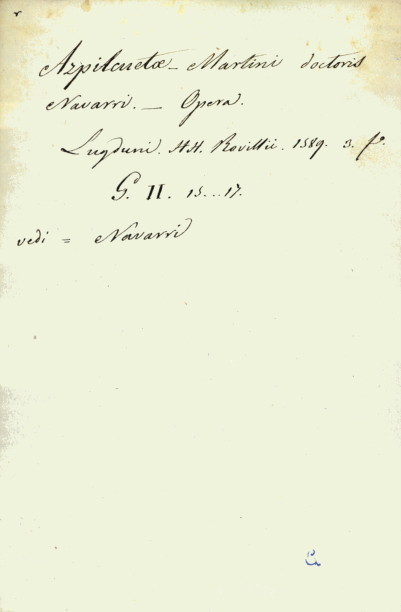 Azpilcuetæ - Martini doctoris
Navarri. - Opera.
Lugduni. HH. Rovillii. 1589. 3. fo.
G. II. 15...17.
vedi = Navarri